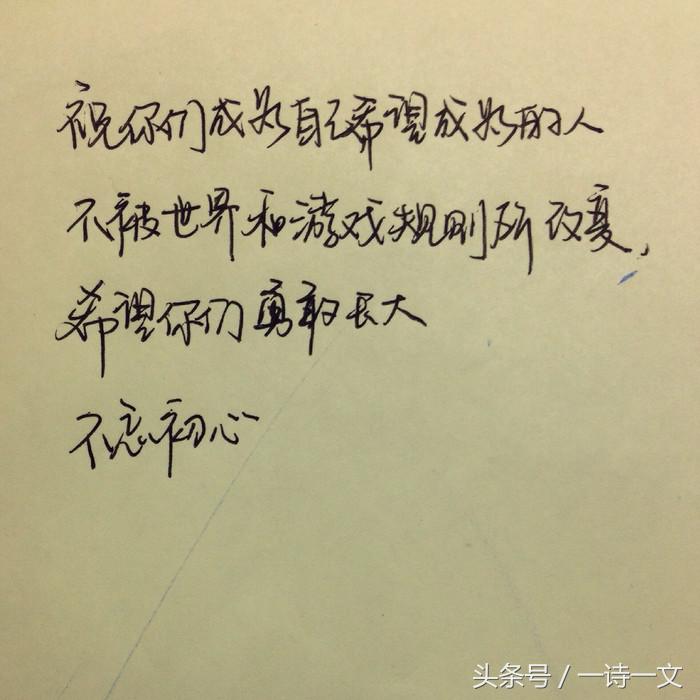 祝你们成为自己希望成为的人
不被世界和游戏规则所改变,
希望你们勇敢长大
不忘初心
头条号 / 一诗一文